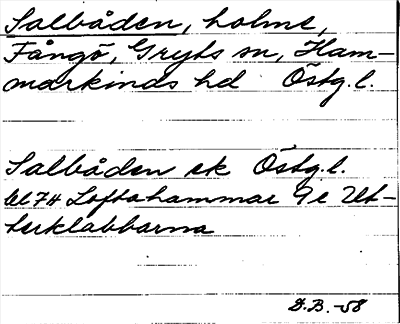 Salbåden, holme,
Fångö, Gryts sn, Ham-
markinds hd Östg. l.
Salbåden ek Östg. l.
bl 74 Loftahammar 9e Ut-
terklabbarna
D.B. -58